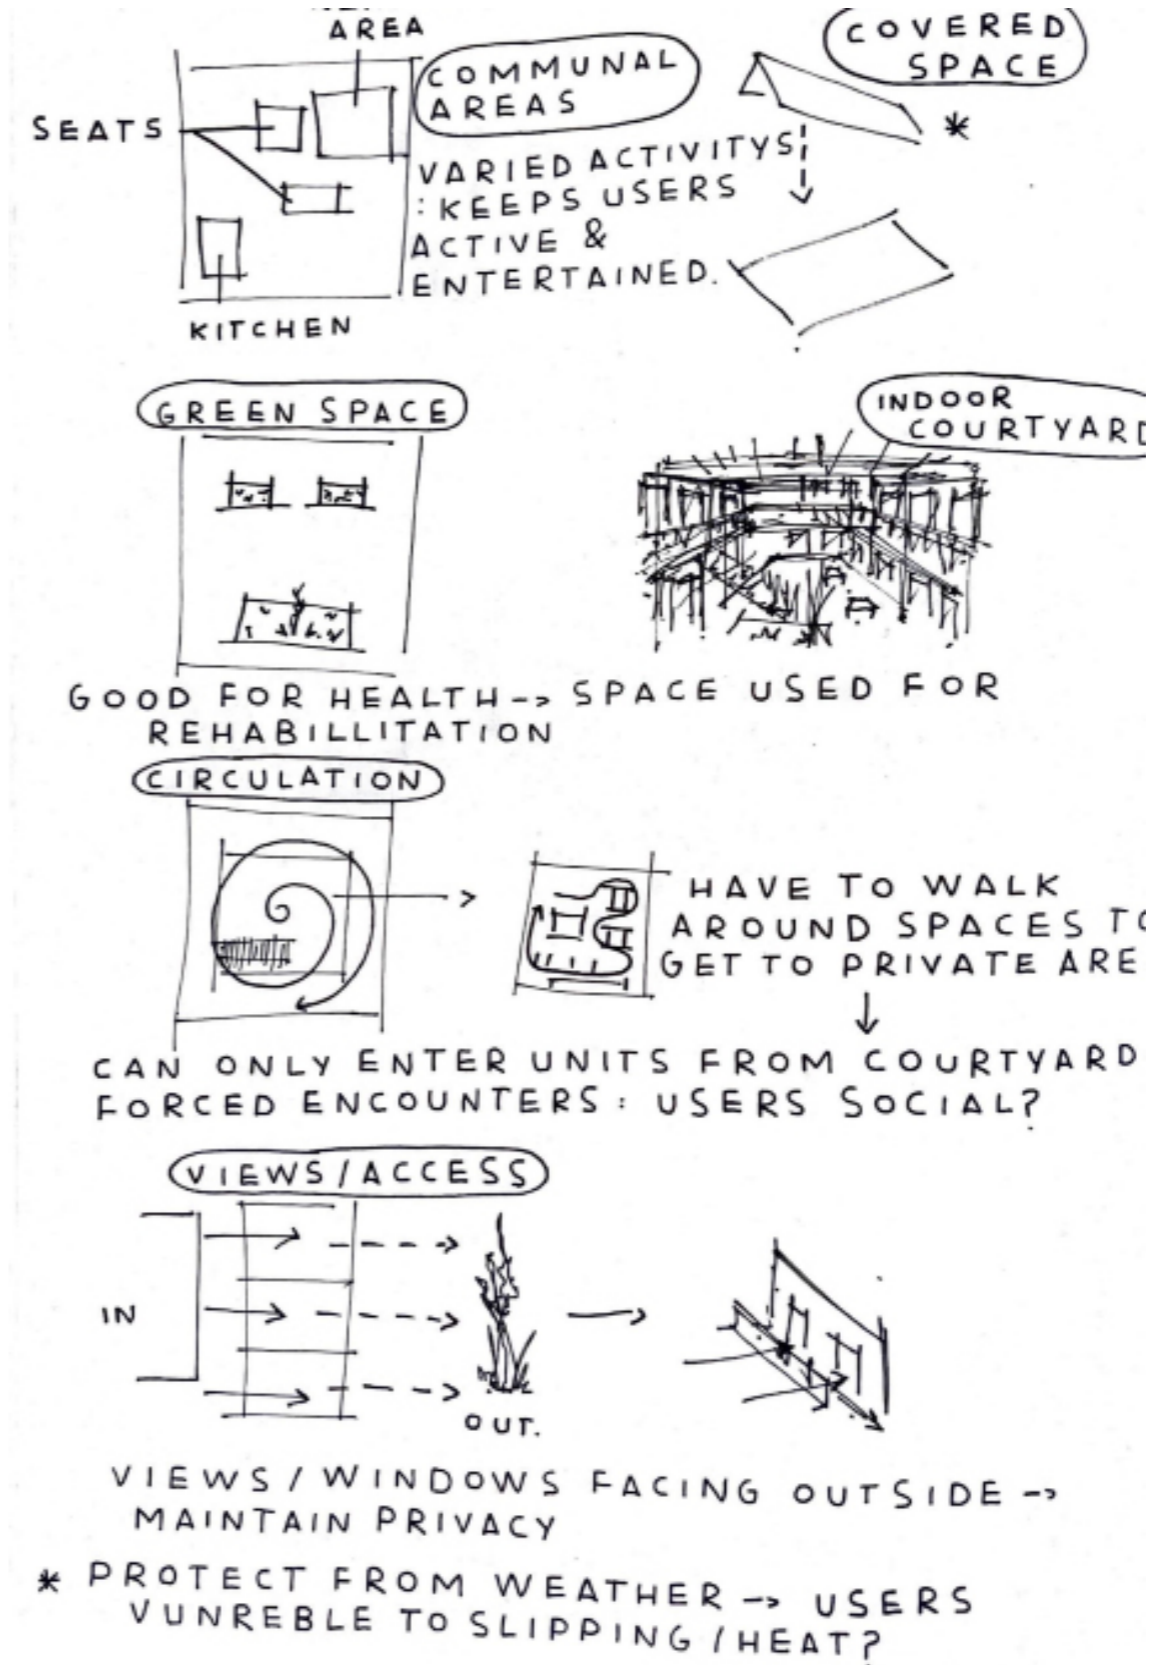 AREA
COMMUNAL
AREAS
SEATS
KITCHEN
VARIED ACTIVITYS
: KEEPS USERS
ACTIVE &
ENTERTAINED.
COVERED
SPACE
*
GREEN SPACE
INDOOR
COURTYARD
GOOD FOR HEALTH --> SPACE USED FOR
REHABILLITATION
CIRCULATION
HAVE TO WALK
AROUND SPACES TO
GET TO PRIVATE ARE
CAN ONLY ENTER UNITS FROM COURTYARD
FORCED ENCOUNTERS : USERS SOCIAL?
VIEWS/ACCESS
IN
OUT.
VIEWS/WINDOWS FACING OUTSIDE -->
MAINTAIN PRIVACY
* PROTECT FROM WEATHER --> USERS
VUNREBLE TO SLIPPING/HEAT?